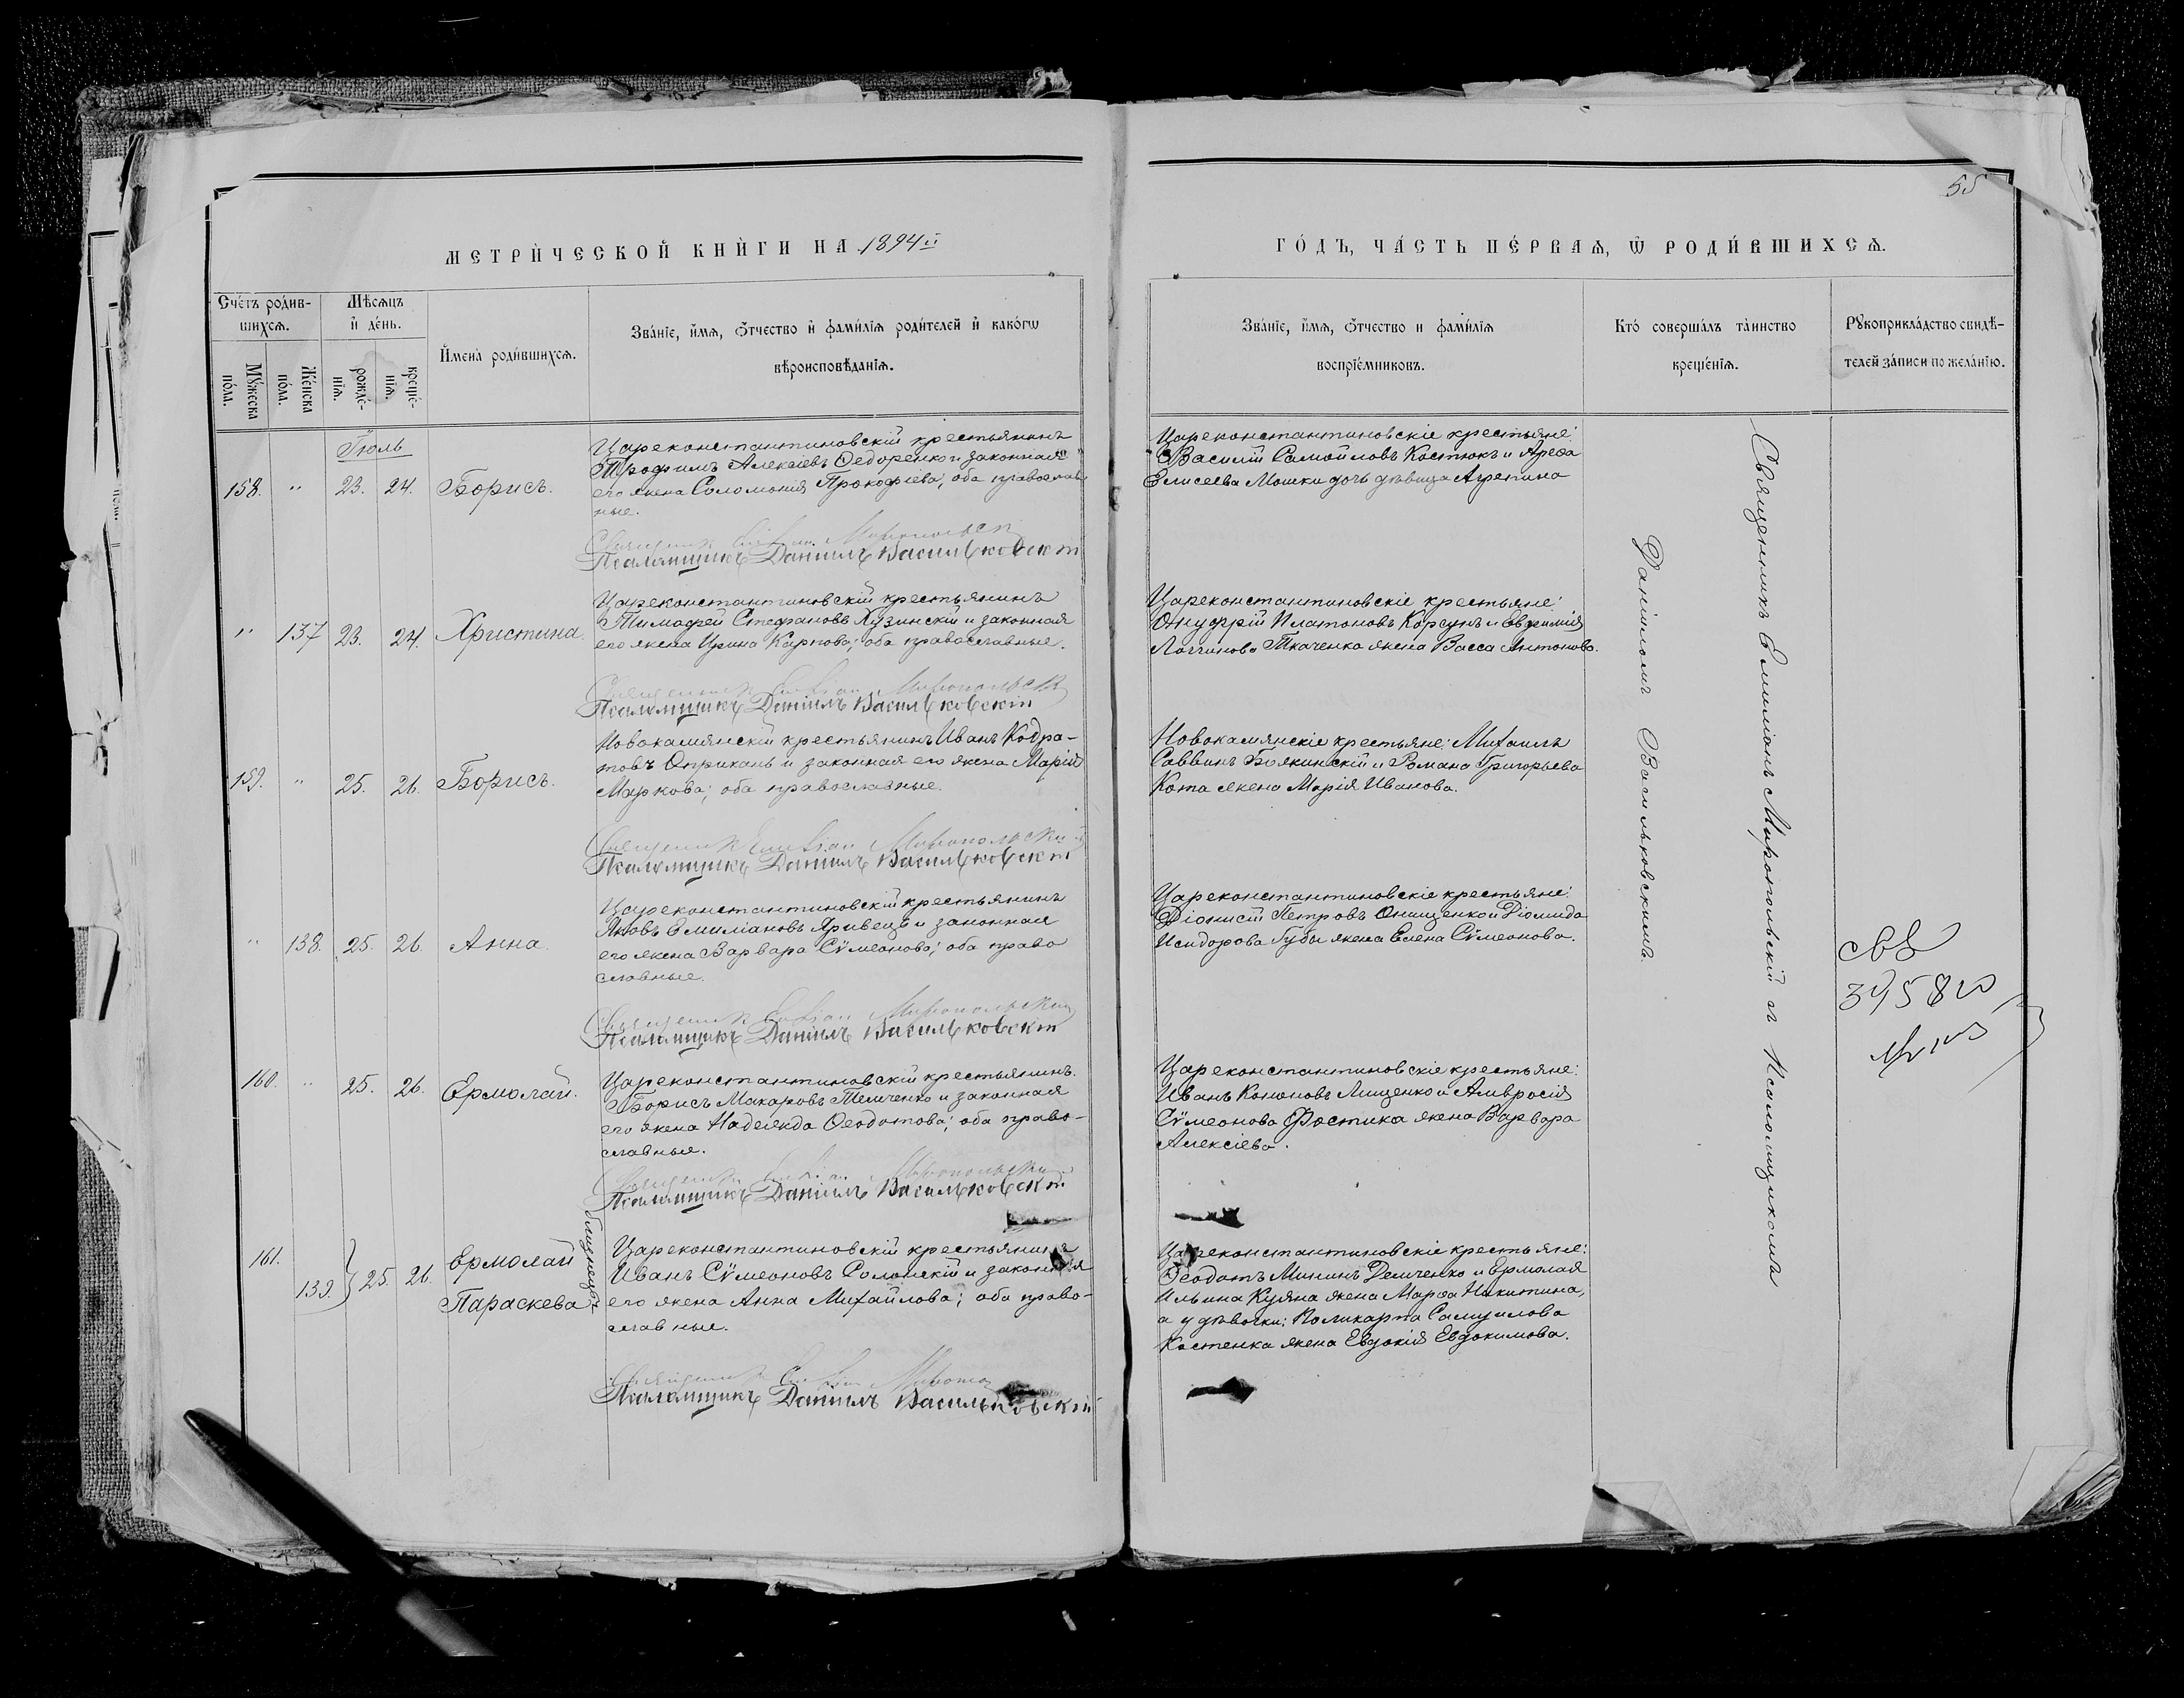 55
МЕТРИ́ЧЕСКОЙ КНИ́ГИ НА 1894й
ГО́ДЪ, ЧА́СТЬ ПЕ́РВАѦ, Ѿ РОДИ́ВШИХСѦ.
Сче́тъ роди́в-
шихсѧ.
Мꙋ́жеска
по́ла.
Же́нска
по́ла.
Мѣ́сѧцъ
и҆ де́нь.
рожде́-
нїѧ.
креще́-
нїѧ.
И҆мена̀ роди́вшихсѧ.
Зва́нїе, и҆́мѧ, ѻ҆́тчество и҆ фами́лїѧ роди́телей и҆ како́гѡ
вѣроисповѣ́данїѧ.
Зва́нїе, и҆́мѧ, ѻ҆́тчество и фами́лїѧ
воспрїе́мниковъ.
Кто́ соверша́лъ та́инство
креще́нїѧ.
Рꙋкоприкла́дство свидѣ́-
телей за́писи по жела́нїю.
Іюль
158. " 23. 24. Борисъ.
Цареконстантиновскій крестьянинъ
Трофимъ Алексіевъ Ѳедоренко и законная
его жена Соломонія Прокофіева; оба православ
ные.
Священник Миропольскі
Псаломщикъ Даніилъ Васильковскій
Цареконстантиновскіе крестьяне:
Василій Самойловъ Костюкъ и Ареѳа
Елисеева Мошки дочь дѣвица Агрепина
" 137 23. 24. Христина
Цареконстантиновскій крестьянинъ
Тимофей Стефановъ Лузинскій и законная
его жена Ирина Карпова; оба православные.
Священник Миропольскі
Псаломщикъ Даніилъ Васильковскій
Цареконстантиновскіе крестьяне:
Онуфрій Платоновъ Корсунъ и Евфимія
Логгинова Ткаченка жена Васса Антонова.
159. " 25. 26. Борисъ.
Новокамянскій крестьянинъ Иванъ Кодра-
товъ Оприкань и законная его жена Марія
Маркова; оба православные.
Священник Миропольскій
Псаломщикъ Даніилъ Васильковскій
Новокамянскіе крестьяне: Михаилъ
Саввинъ Божинскій и Романа Григорьева
Кота жена Марія Иванова.
" 138. 25. 26. Анна.
Цареконстантиновскій крестьянинъ
Яковъ Емиліановъ Яривецъ и законная
его жена Варвара Сѵмеонова; оба право
славные.
Священник Миропольскій
Псаломщикъ Даніилъ Васильковскій
Цареконстантиновскіе крестьяне:
Діонисій Петровъ Онищенко и Діомида
Исидорова Губы жена Елена Сѵмеонова.
160. " 25. 26. Ермолай.
Цареконстантиновскій крестьянинъ
Борисъ Макаровъ Темченко и законная
его жена Надежда Ѳеодотова; оба право-
славные.
Священник Миропольскій
Псаломщикъ Даніилъ Васильковскій
Цареконстантиновскіе крестьяне:
Иванъ Кононовъ Лищенко и Амвросія
Сѵмеонова Фостика жена Варвара
Алексіева.
161. Ермолай
139. 25. 26.
Параскева
близнецы
Цареконстантиновскій крестьянинъ
Иванъ Сѵмеоновъ Солонскій и законная
его жена Анна Михайлова; оба право-
славные.
Священник
Псаломщикъ Даніилъ Васильковскій
Цареконстантиновскіе крестьяне:
Ѳеодотъ Мининъ Демченко и Ермолая
Ильина Куяна жена Марѳа Никитина,
а у дѣвочки: Поликарпа Самуилова
Костенка жена Евдокія Евдокимова.
Священникъ Емиліанъ Миропольскій съ Псаломщикомъ
Даніиломъ Васильковскимъ.